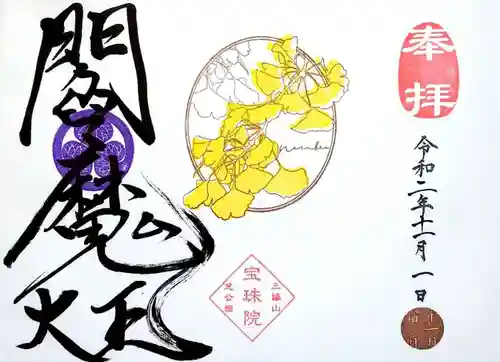 奉拝
令和二年十一月一日
三縁山
宝珠院
芝公園
閻魔大王